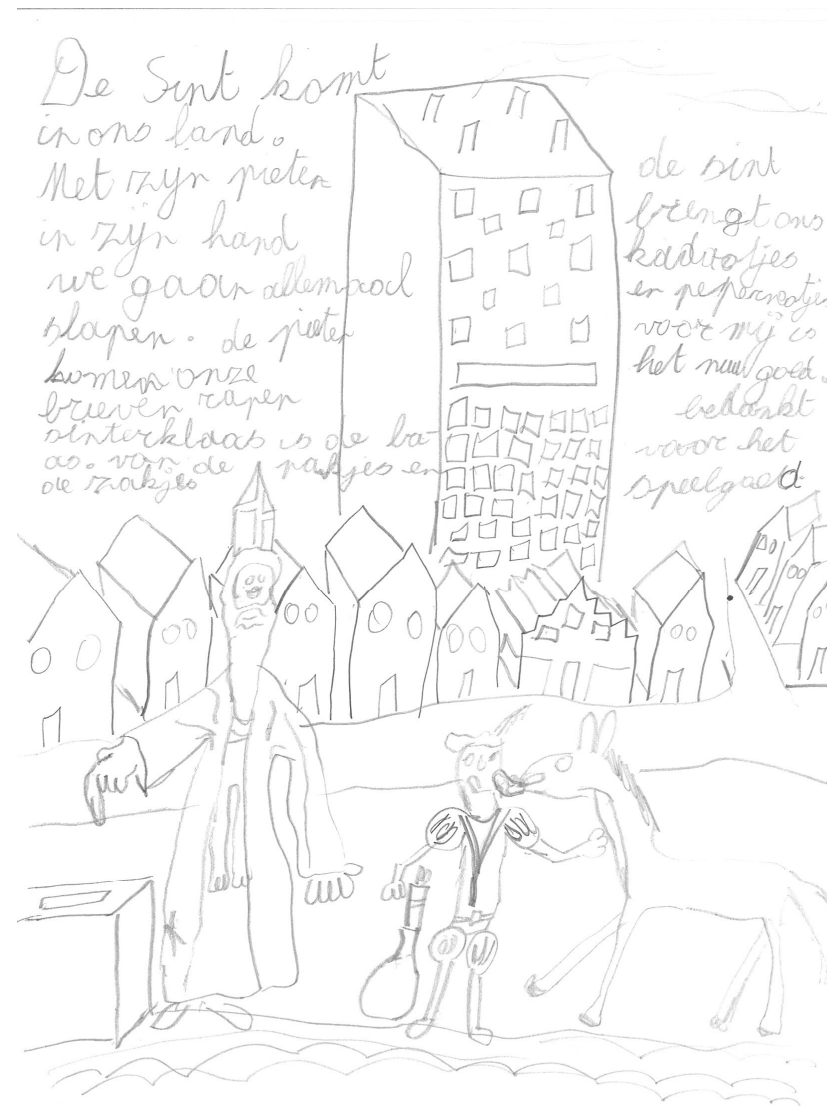 De Sint komt
in ons land.
Met zijn pieten
in zijn hand
we gaan allemaal
slapen. de pieten
komen onze
brieven rapen
sinterklaas is de ba-
as. van de pakjes en
de zakjes
de sint
brengt ons
kadootjes
en pepernootjes
voor mij is
het nuu goed.
bedankt
vooor het
speelgoed